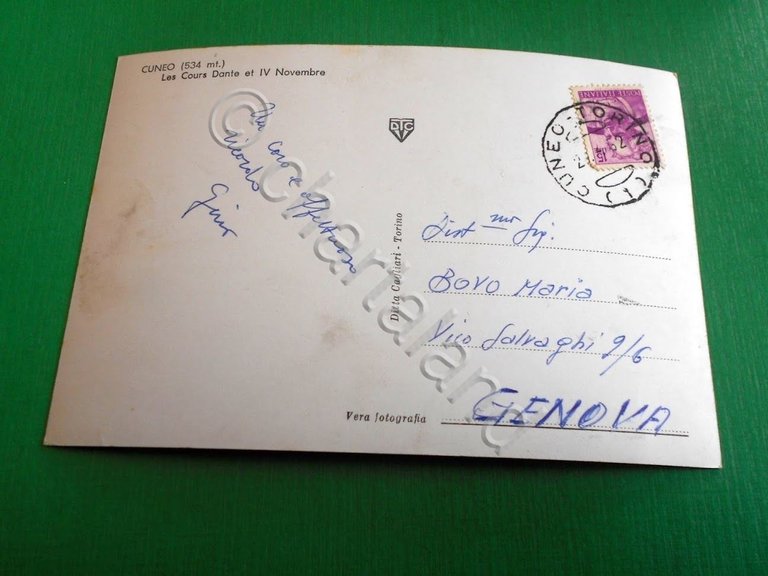 CUNEO (534 mt.)
Les Cours Dante et IV Novembre
DTC
POSTE ITALIANE
15
CUNEO-TORINO (1)
Un caro e affettuoso
ricordo
Gino
Dist.mo Sig.
BOVO MARIA
Vico Salvaghi 9/6
GENOVA
Ditta Cagliari - Torino
Vera fotografia
© chartaland